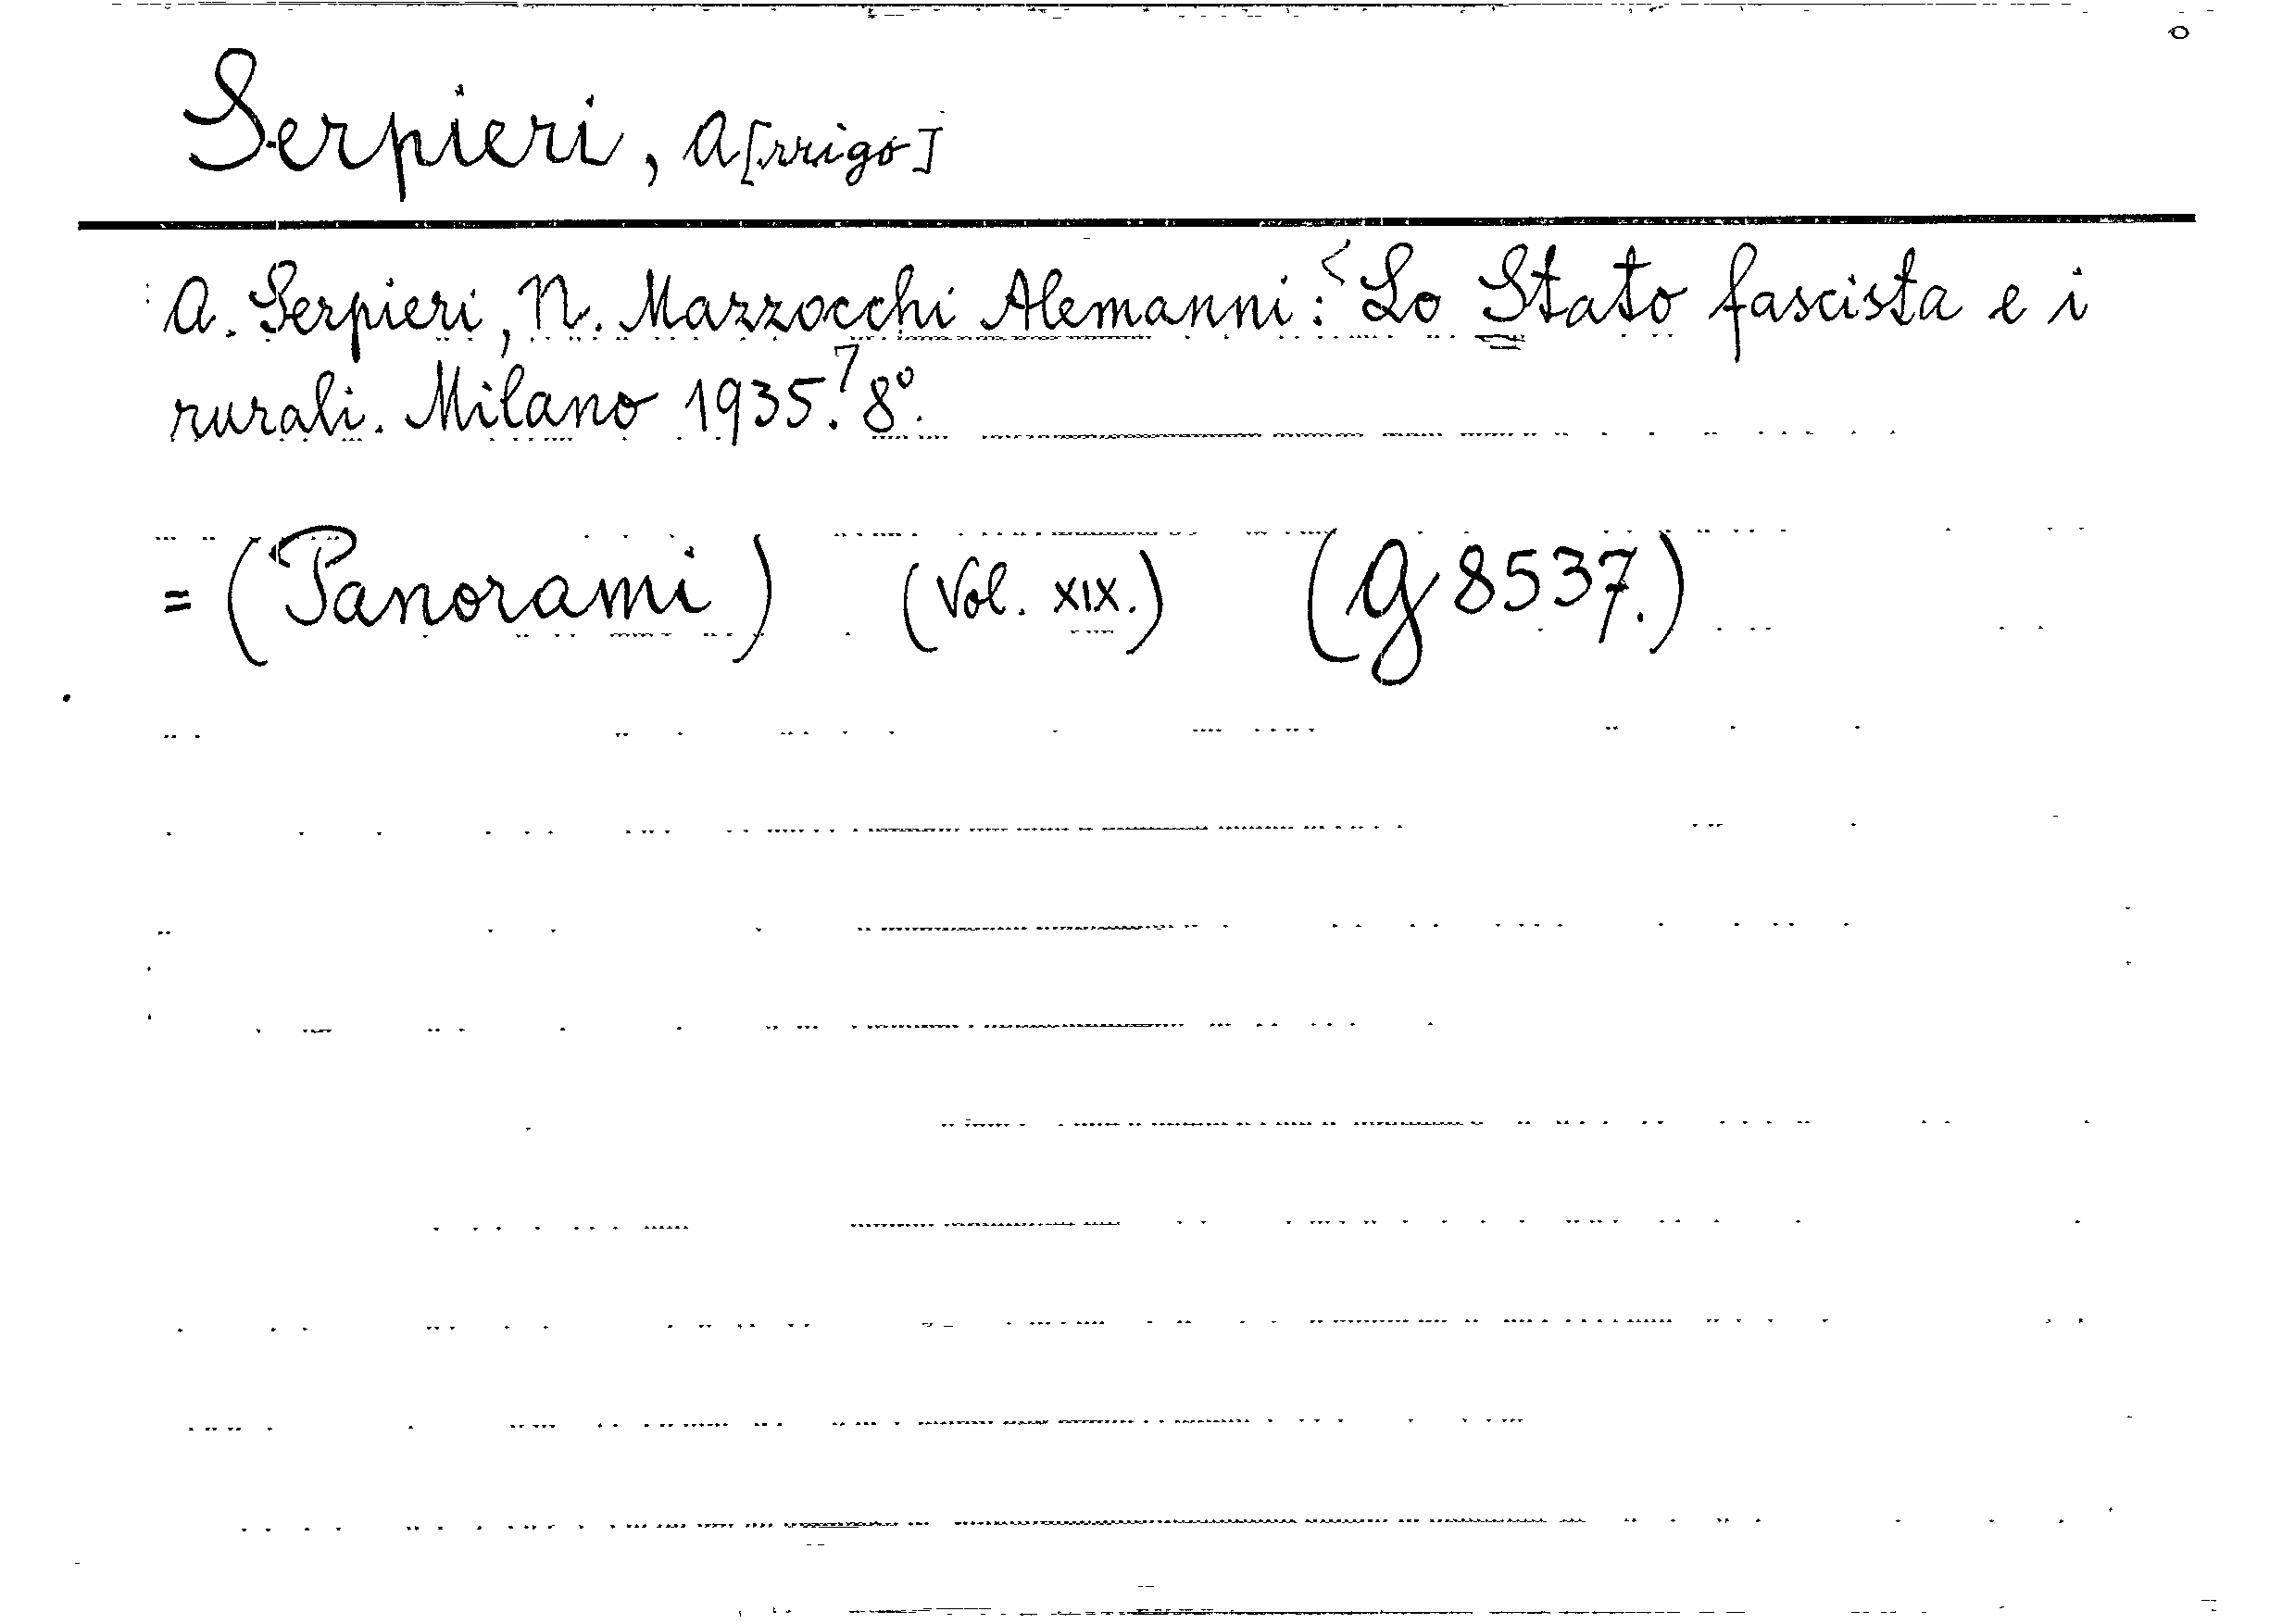 Serpieri, A[rrigo]
A. Serpieri, N. Mazzocchi Alemanni: <Lo Stato fascista e i
rurali. Milano 1935.7 8º.
= (Panorami) (Vol. XIX.) (G 8537.)